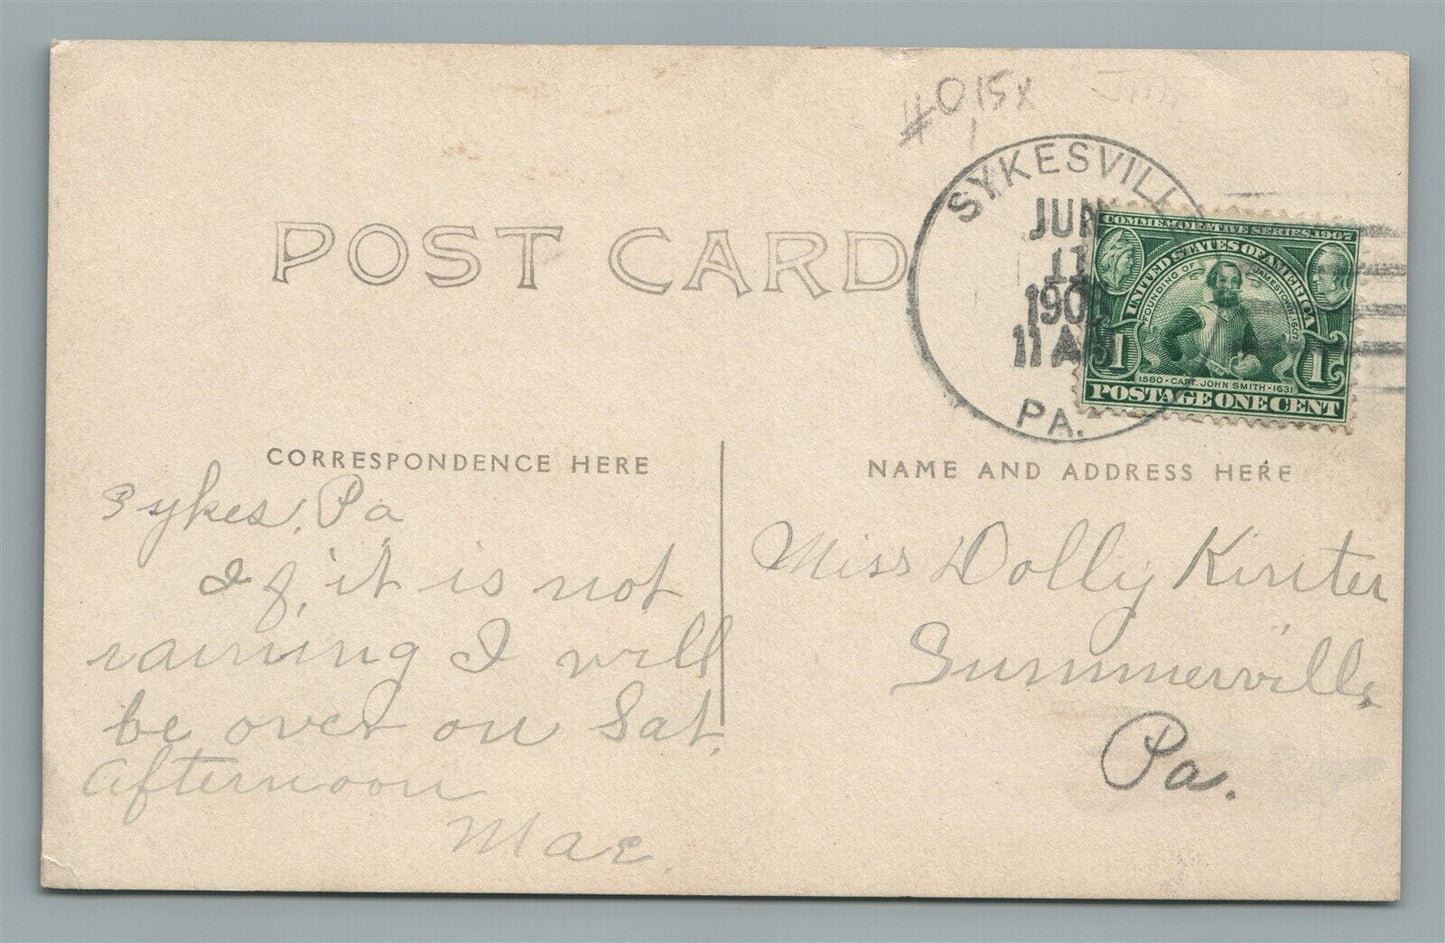 #015x
SYKESVILL
JUN
11
190
11 A
PA.
COMMEMORATIVE SERIES, 1907
UNITED STATES OF AMERICA
FOUNDING OF JAMESTOWN, 1607
1 1
1580 • CAPT. JOHN SMITH • 1631
POSTAGE ONE CENT
POST CARD
CORRESPONDENCE HERE
Sykes, Pa
If, it is not
raining I will
be over on Sat,
afternoon
Mae
NAME AND ADDRESS HERE
Miss Dolly
Summerville,
Pa.